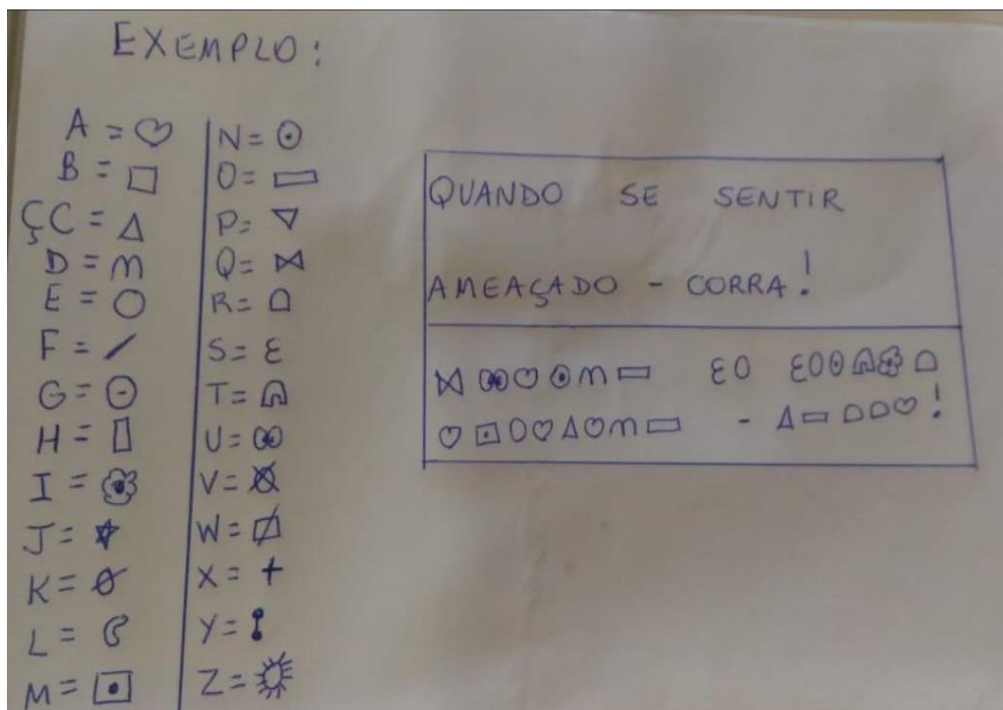 EXEMPLO:
A = ♡
B = □
ÇC = △
D = m
E = ○
F = /
G = ⊖
H = ▯
I =
J = ☆
K = ∅
L =
M = ⊡
N = ⊙
O = ▭
P = ▽
Q = ⋈
R =
S = ε
T =
U = ∞
V =
W =
X = +
Y =
Z =
QUANDO SE SENTIR
AMEAÇADO - CORRA!